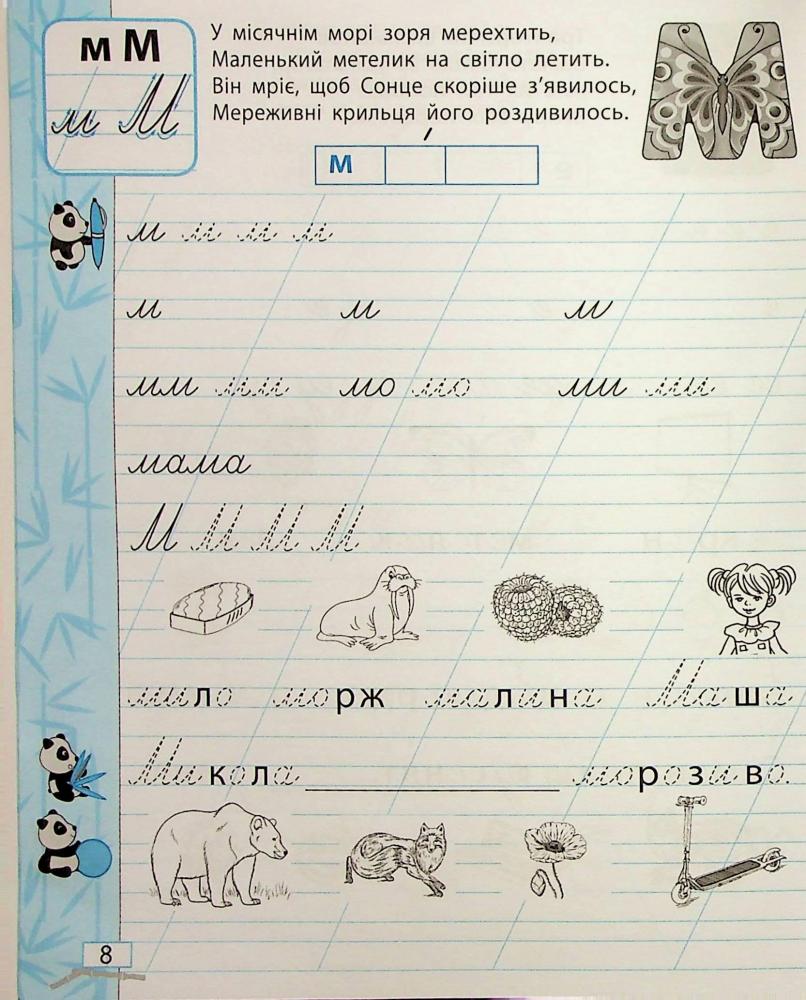 м М
м М
У місячнім морі зоря мерехтить,
Маленький метелик на світло летить.
Він мріє, щоб Сонце скоріше з’явилось,
Мереживні крильця його роздивилось.
М
м
м м м м
м м м
мм мм мо мо ми ми
мама
М М М М
мило морж малина Маша
Микола ____________ морозиво.
8